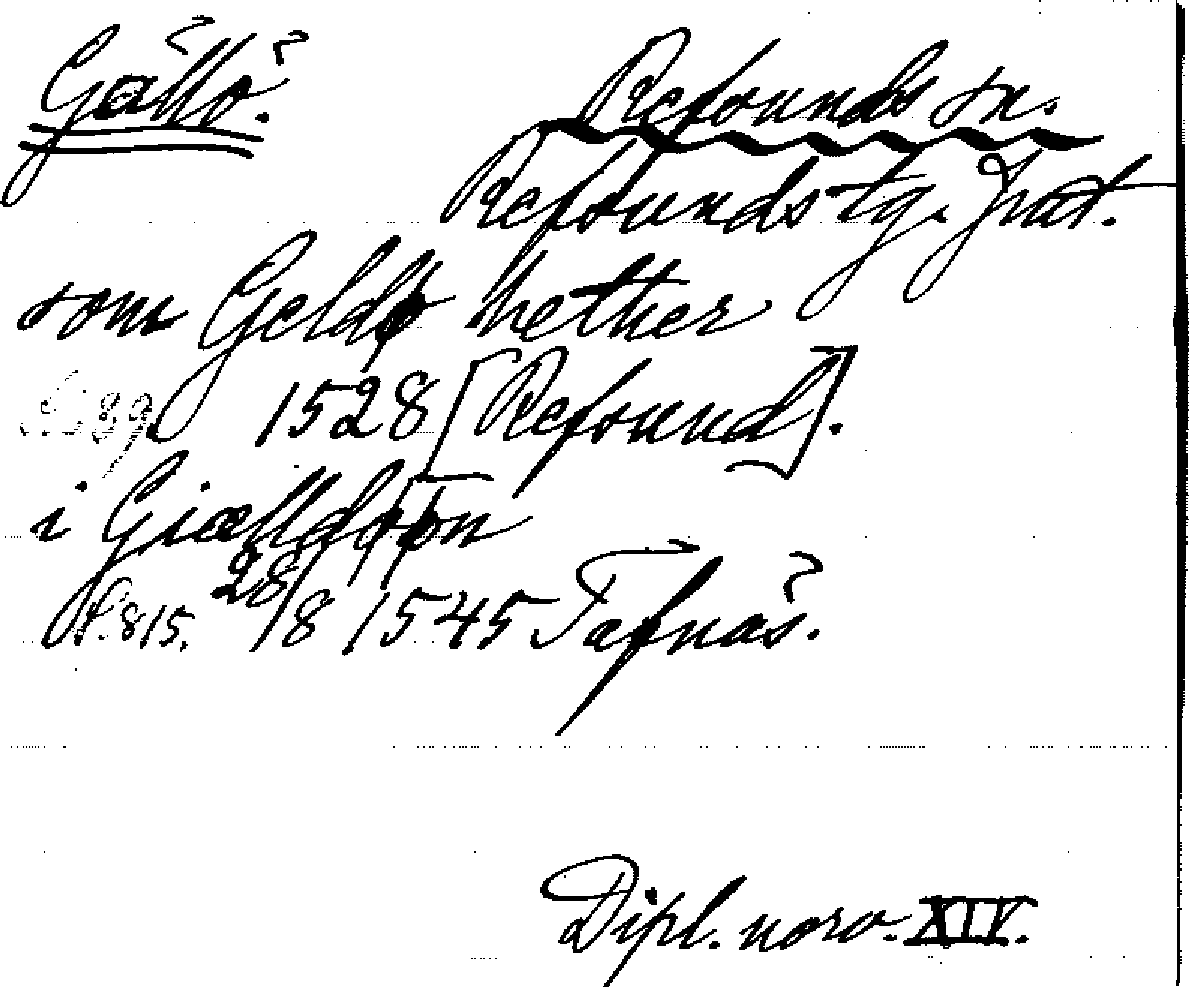 Gällö. Refsunds sn.
Refsunds tg. Jmt.
som Geldø hether
1528 [Refsund].
i Giælldøøn
s. 815. 28/8 1545 Tafnäs.
Dipl. norv. XIV.